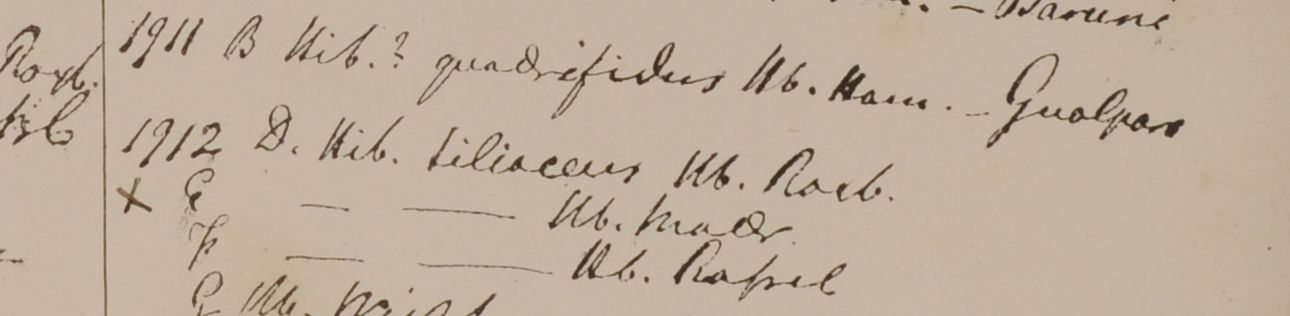 — Barune
Roxb.
1911 B Hib.? quadrifidus Hb. Ham. — Gualpara
1912 D. Hib. tiliaceus Hb. Roxb.
x E — — Hb. Madr
F — — Hb. Russel
G Hb. Wight